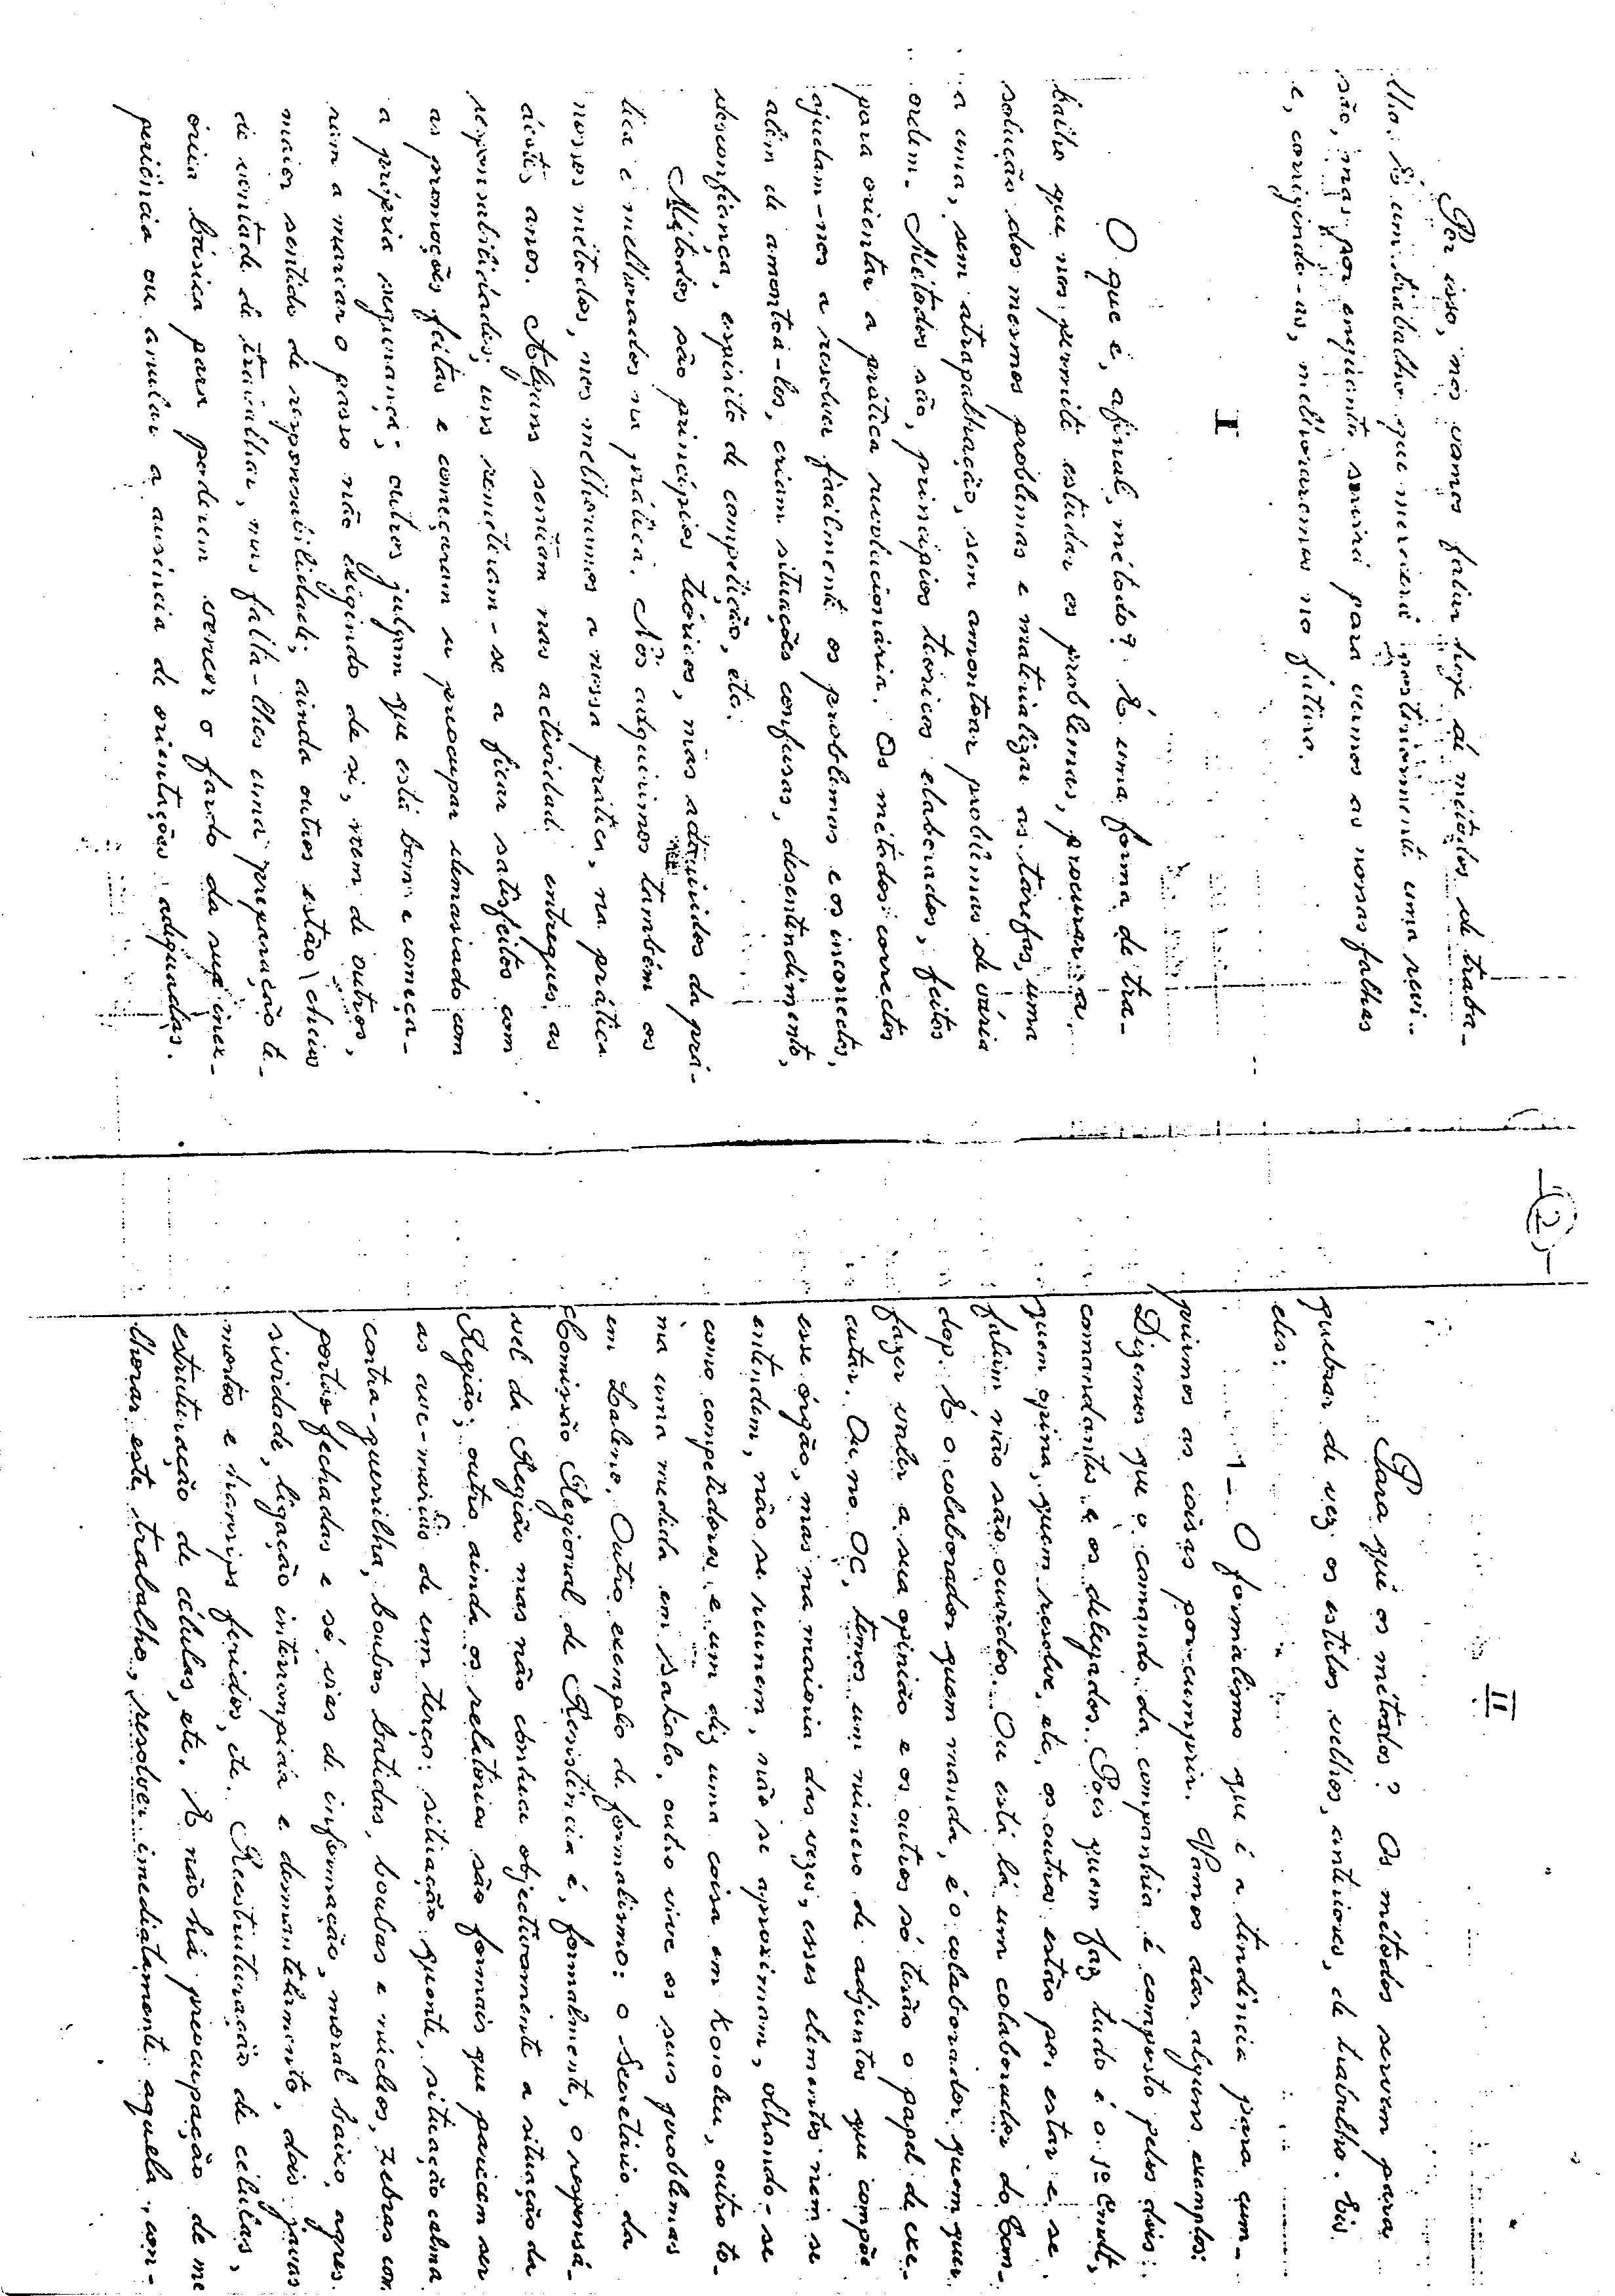 Por isso, nós vamos falar hoje de métodos de traba-
lho. É um trabalho que merecerá posteriormente uma revi-
são, mas por enquanto servirá para vermos as nossas falhas
e, corrigindo-as, melhoraremos no futuro.
I
O que é, afinal, método? É uma forma de tra-
balho que nos permite estudar os problemas, procurar a
solução dos mesmos problemas e materializar as tarefas, uma
a uma, sem atrapalhação, sem amontoar problemas de vária
ordem. Métodos são, princípios teóricos elaborados, feitos
para orientar a prática revolucionária. Os métodos correctos
ajudam-nos a resolver fàcilmente os problemas e os incorrectos,
além de amontoá-los, criam situações confusas, desentendimento,
desconfiança, espírito de competição, etc.
Métodos são princípios teóricos, mas adquiridos da prá-
tica e melhorados na prática. Nós adquirimos também os
nossos métodos, nos melhoramos a nossa prática, na prática
destes anos. Alguns sentiam nas actividades entregues, as
responsabilidades; uns remeteram-se a ficar satisfeitos com
as promoções feitas e começaram a preocupar demasiado com
a própria segurança; outros julgam que está bem e começa-
ram a marcar o passo não exigindo de si, nem de outros,
maior sentido de responsabilidade; ainda outros estão cheios
de vontade de trabalhar, mas falta-lhes uma preparação te-
órica básica para poderem vencer o fardo da sua inex-
periência ou anular a ausência de orientações adequadas.
2
II
Para quê os métodos? Os métodos servem para
quebrar de vez os estilos velhos, anteriores, de trabalho. Eis
eles:
1- O formalismo que é a tendência para cum-
prirmos as coisas por cumprir. Vamos dar alguns exemplos:
Dizemos que o comando da companhia é composto pelos dois
comandantes e os delegados. Pois quem faz tudo é o 1º Cmdt,
quem opina, quem resolve, etc, os outros estão por estar e, se
falam não são ouvidos. Ou está lá um colaborador do Com-
dop. É o colaborador quem manda, é o colaborador quem quer
fazer valer a sua opinião e os outros só terão o papel de exe-
cutar. Ou no OC, temos um número de adjuntos que compõe
esse órgão, mas na maioria das vezes, esses elementos nem se
entendem, não se reunem, não se aproximam, olhando-se
como competidores e um diz uma coisa em Koioleu, outro to-
ma uma medida em Satalo, outro vive os seus problemas
em Laleno. Outro exemplo de formalismo: o Secretário da
Comissão Regional de Resistência é, formalmente, o responsá-
vel da Região mas não conhece objectivamente a situação da
Região; outro ainda os relatórios são formais que parecem ser
as ave-marias de um terço: situação quente, situação calma
contra-guerrilha, boubas batidas, boubas e núcleos, zebras com
portas fechadas e só vias de informação, moral baixo, agres.
sividade, ligação interrompida e desmantelamento, dois javas
mortos e transips feridos, etc. Reestruturação de células,
estruturação de células, etc. E não há preocupação de me
lhorar este trabalho, resolver imediatamente aquela, con-